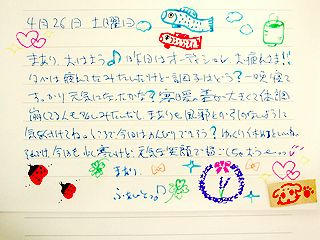 4月26日 土曜日
まあり、おはよう♪昨日はオーディション、お疲れさま!!
夕べは疲れてたみたいだけど 調子はどう?一晩寝て
すっかり元気になったかな?寒暖差が大きくて体調
崩してる人も多いみたいだし、まありも風邪などひかないように
気をつけてね。
今日も少し寒いけど、元気な笑顔で過ごしちゃおうぅ〜
まあり、
ふぁいとっ♪